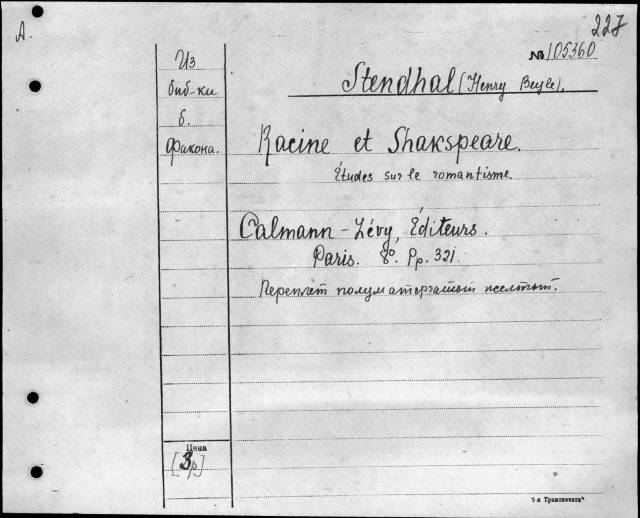 А.
227
№ 105360
Из
биб-ки
б.
Факона.
Stendhal (Henry Beyle).
Racine et Shakspeare.
Études sur le romantisme.
Calmann-Lévy, Éditeurs.
Paris. 8°. Pp. 321.
Переплёт полуматерчатый желтый.
Цена
[3р]
"7-я Транспечать"